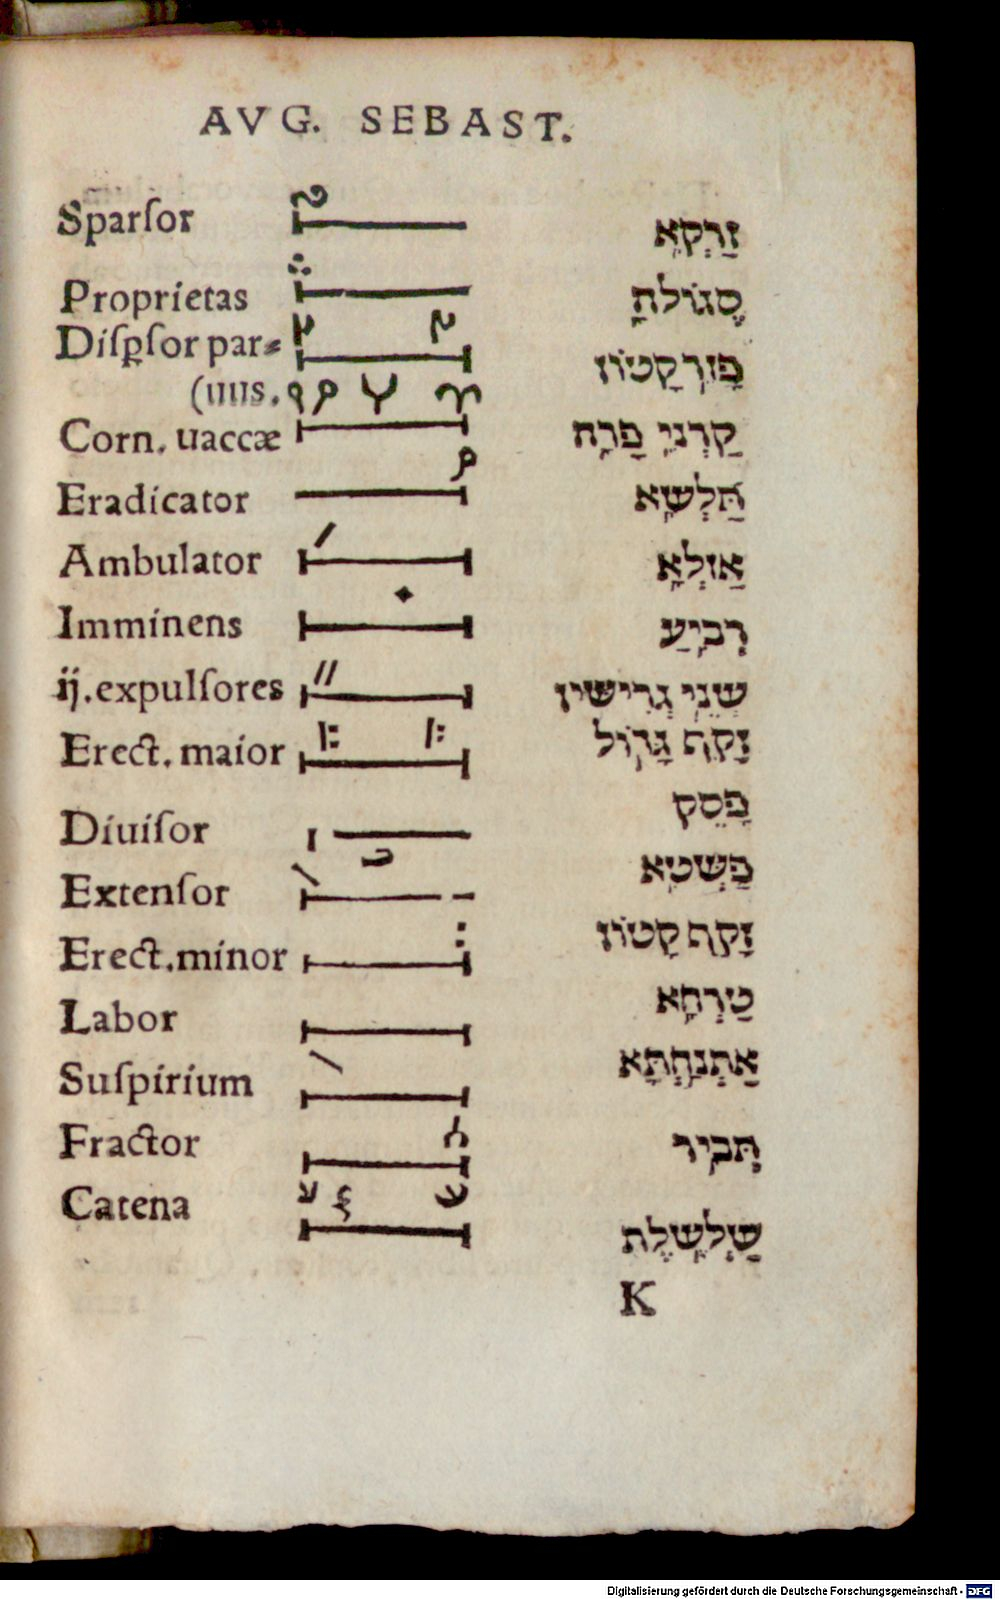 AVG. SEBAST.
Sparſor זַרְקָא
Proprietas סְגוֹלתָּ
Diſꝑſor par⸗ פָּזֵר קָטוֹן
(uus.
Corn. uaccæ קַרְנֵי פָרָה
Eradicator תַּלְשָא
Ambulator אַזְלָא
Imminens רְבִיעַ
ij. expulſores שְׁנֵי גְרִישִׁין
Erect. maior זָקֵף גָּדוֹל
Diuiſor פָּסֵק
Extenſor פַּשְׁטָא
Erect. minor זָקֵף קָטוֹן
Labor טַרְחָא
Suſpirium אַתְנַחְתָּא
Fractor תְּבִיר
Catena שַׁלְשֶׁלֶת
K
Digitalisierung gefördert durch die Deutsche Forschungsgemeinschaft - DFG